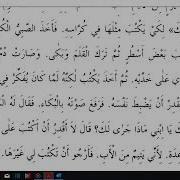 لَكَ» لِكَيْ يَكْتُبَ مِثْلَهَا فِي كُرَّاسِهِ. فَأَخَذَ الصَّبِيُّ الْكُرَّاسَ
بَعْضَ أَسْطُرٍ ثُمَّ تَرَكَ الْقَلَمَ وَبَكَى. وَصَارَتْ دُمُوعُهُ
عَلَى خَدَّيْهِ. ثُمَّ أَخَذَ يَكْتُبُ لَكِنَّهُ لَمَّا كَانَ يُفَكِّرُ فِي
أَنْ يَضْبِطَ نَفْسَهُ. فَرَفَعَ صَوْتَهُ بِالْبُكَاءِ. فَقَالَ لَهُ
يَا ابْنِي مَاذَا جَرَى لَكَ؟ قَالَ لَا أَقْدِرُ أَنْ أَكْتُبَ عَلَى
لِأَنِّي يَتِيمٌ مِنَ الْأَبِ. فَأَرْجُو أَنْ تَكْتُبَ لِي غَيْرَهَا.